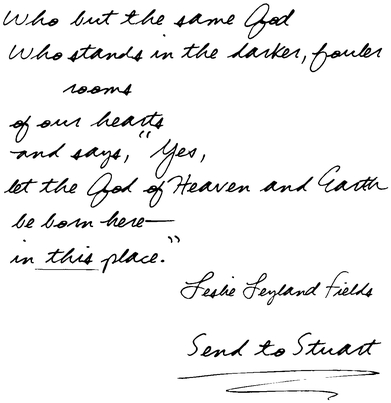 Who but the same God
Who stands in the darker, fouler
rooms
of our hearts
and says, "Yes,
let the God of Heaven and Earth
be born here—
in this place."
Leslie Leyland Fields
Send to Stuart